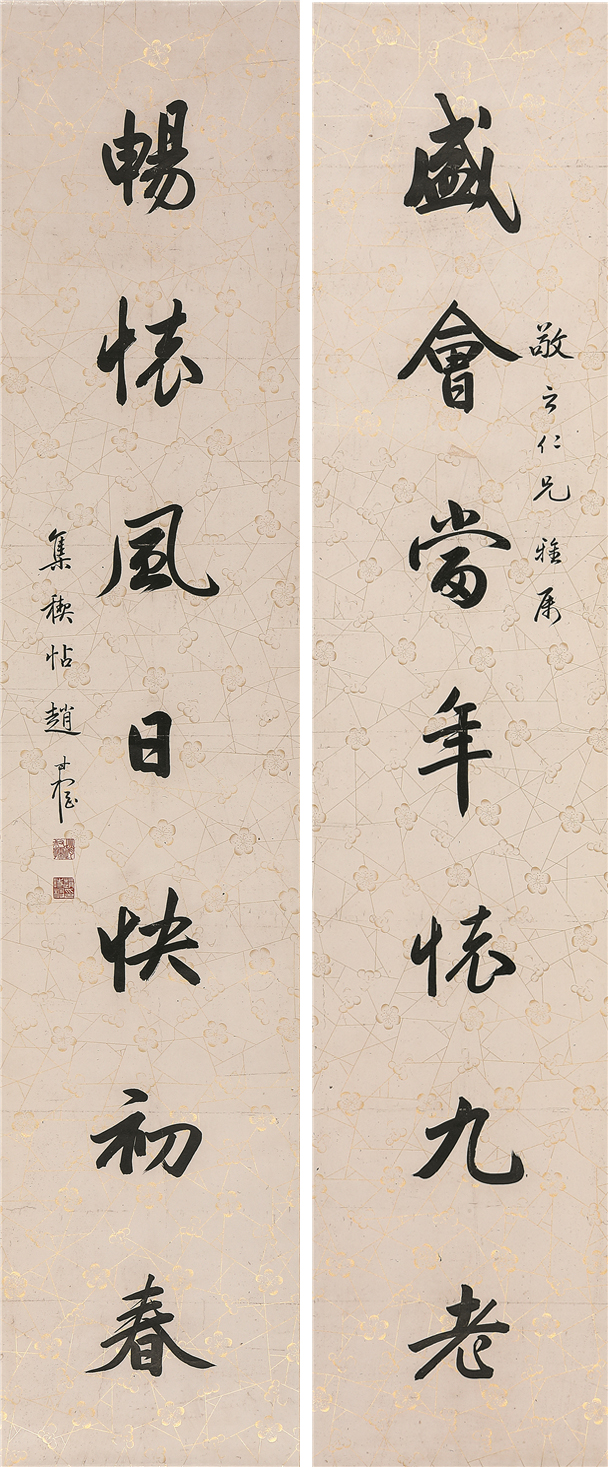 盛會當年懷九老
敬之仁兄雅屬
暢懷風日快初春
集稧帖 趙